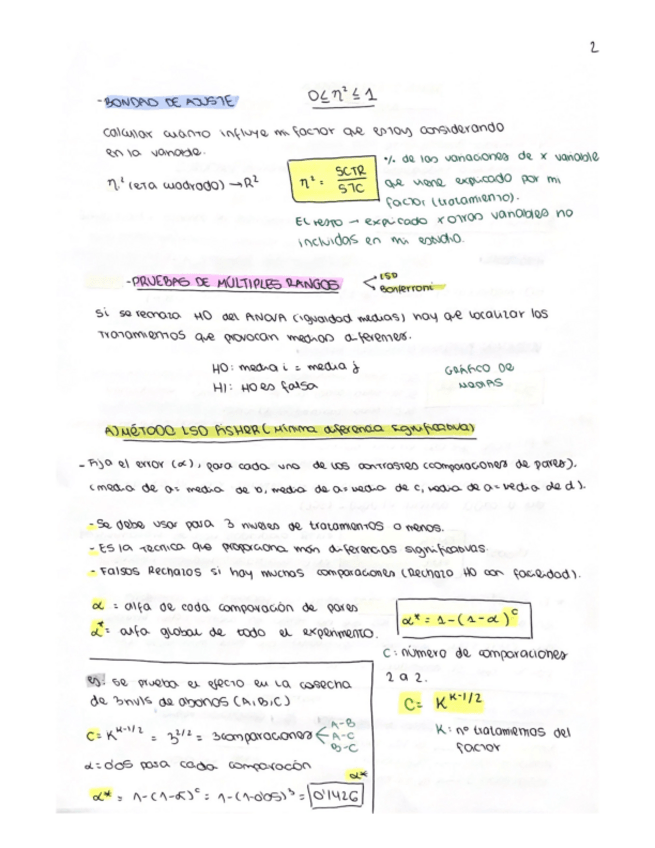 2
- BONDAD DE AJUSTE
0 ≤ η² ≤ 1
calcular cuánto influye mi factor que estoy considerando
en la variable.
η² (eta cuadrado) → R²
η² = SCTR / STC
% de las variaciones de x variable
que viene explicado por mi
factor (tratamiento).
El resto → explicado x otras variables no
incluidas en mi estudio.
- PRUEBAS DE MÚLTIPLES RANGOS
LSD
Bonferroni
Si se rechaza H0 del ANOVA (igualdad medias) hay que localizar los
tratamientos que provocan medias diferentes.
H0: media i = media j
H1: H0 es falsa
GRÁFICO DE
MEDIAS
A) MÉTODO LSD FISHER (Mínima diferencia significativa)
- Fija el error (α), para cada uno de los contrastes (comparaciones de pares).
(media de a = media de b, media de a = media de c, media de a = media de d).
- Se debe usar para 3 niveles de tratamientos o menos.
- Es la técnica que proporciona más diferencias significativas.
- Falsos Rechazos si hay muchas comparaciones (Rechazo H0 con facilidad).
α = alfa de cada comparación de pares
α* = alfa global de todo el experimento.
α* = 1-(1-α)^c
C: número de comparaciones
2 a 2.
C = K^K-1/2
K: nº tratamientos del
factor
ej: se prueba el efecto en la cosecha
de 3 nvls de abonos (A,B,C)
C = K^K-1/2 = 3^2/2 = 3 comparaciones
A-B
A-C
B-C
α = 0'05 para cada comparación
α*
α* = 1-(1-α)^c = 1-(1-0'05)^3 = 0'1426